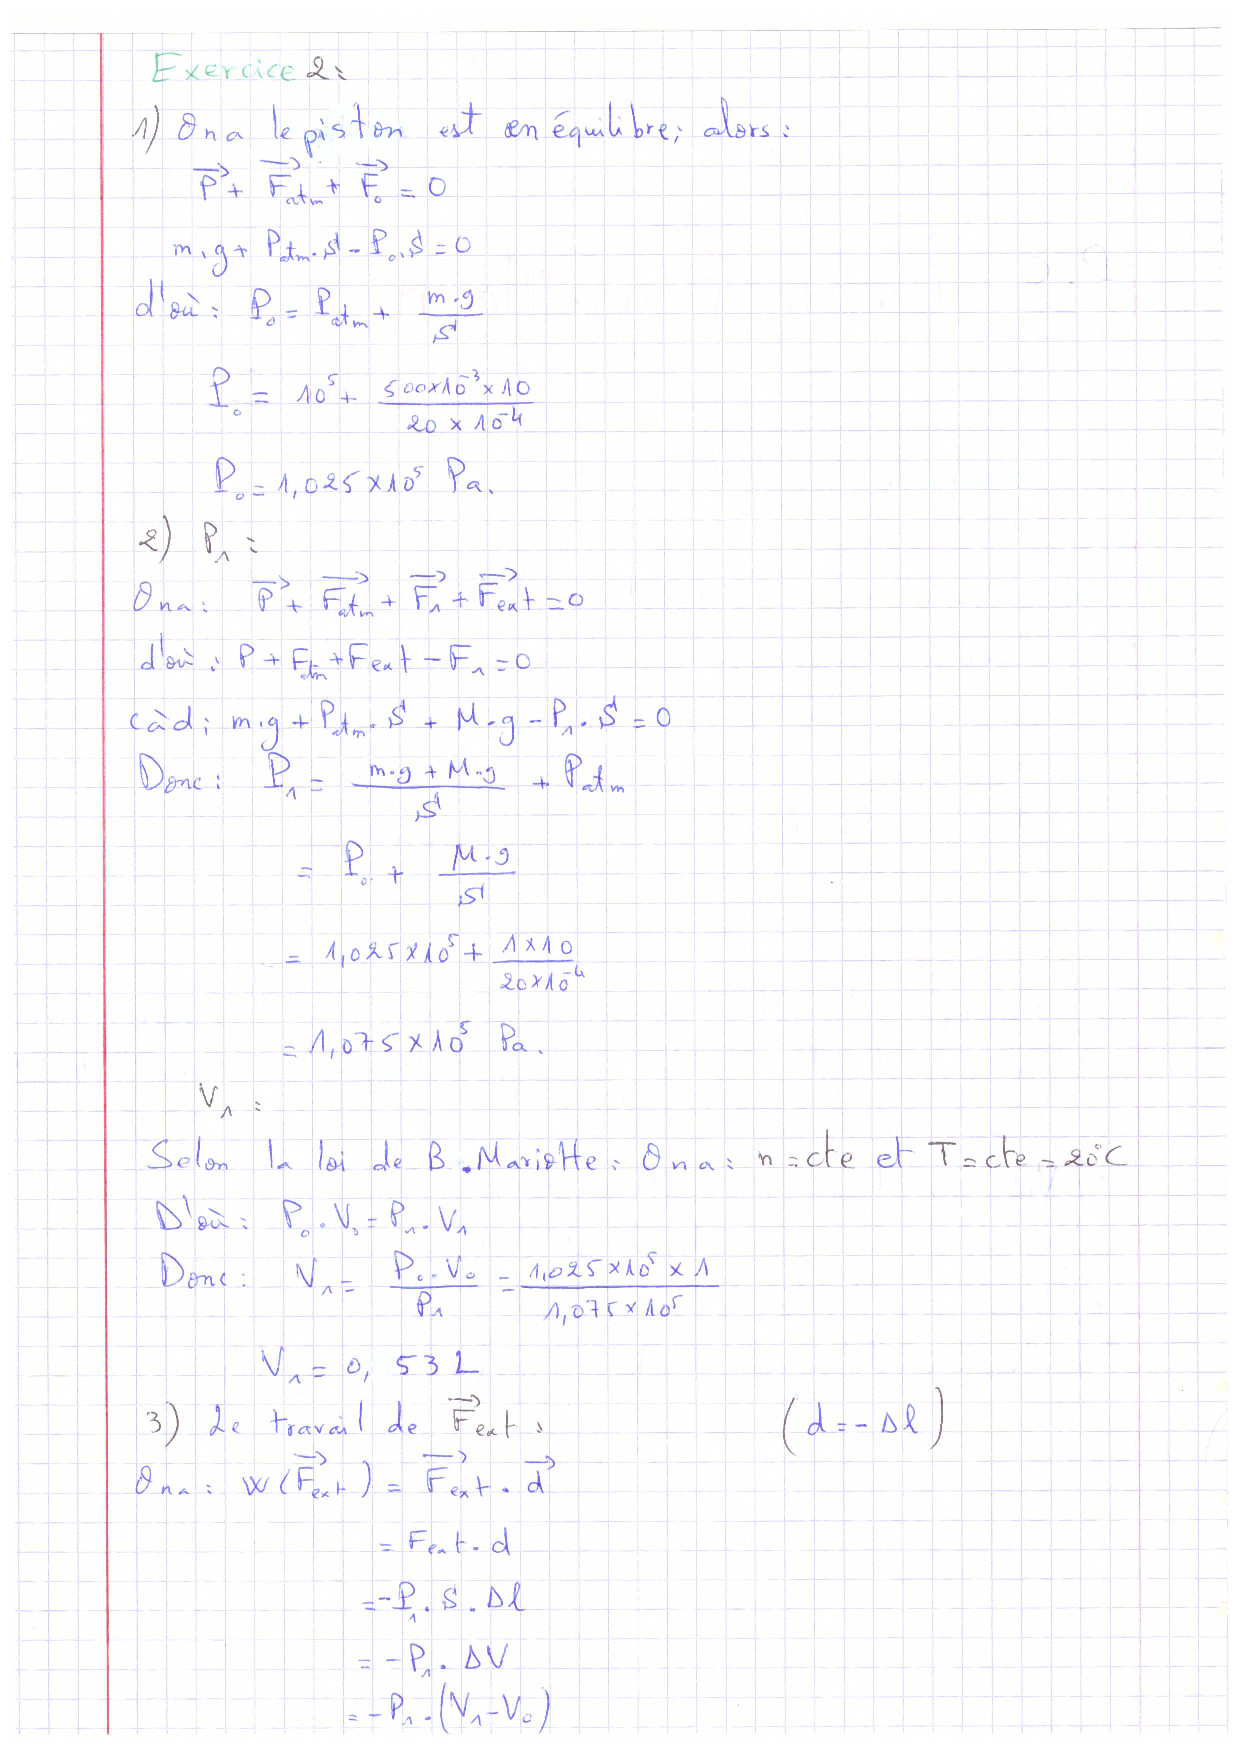 Exercice 2:
1) On a le piston est en équilibre; alors:
P⃗ + F⃗atm + F⃗₀ = 0
m.g + Patm.S - P₀.S = 0
d'où: P₀ = Patm + m.g / S
P₀ = 10⁵ + 500×10⁻³×10 / 20×10⁻⁴
P₀ = 1,025×10⁵ Pa.
2) P₁:
On a: P⃗ + F⃗atm + F⃗₁ + F⃗ext = 0
d'où: P + Fatm + Fext - F₁ = 0
càd; m.g + Patm.S + M.g - P₁.S = 0
Donc: P₁ = m.g + M.g / S + Patm
= P₀ + M.g / S
= 1,025×10⁵ + 1×10 / 20×10⁻⁴
= 1,075×10⁵ Pa.
V₁:
Selon la loi de B.Mariotte: On a: n=cte et T=cte=20°C
D'où: P₀.V₀ = P₁.V₁
Donc: V₁ = P₀.V₀ / P₁ = 1,025×10⁵×1 / 1,075×10⁵
V₁ = 0,53 L
3) Le travail de F⃗ext: (d=-Δl)
On a: W(F⃗ext) = F⃗ext.d⃗
= Fext.d
= -P₁.S.Δl
= -P₁.ΔV
= -P₁.(V₁-V₀)